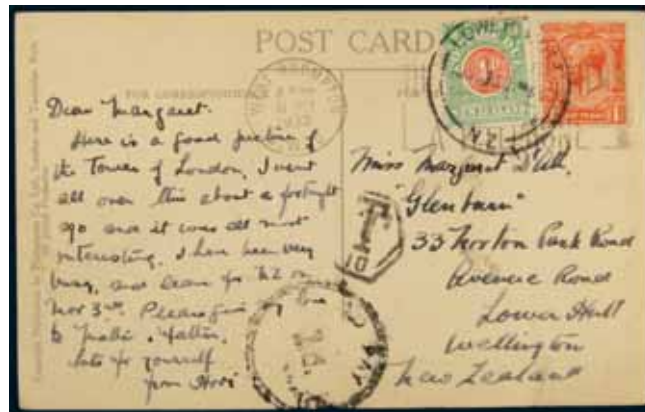 POST CARD
FOR CORRESPONDENCE
Dear Margaret.
Here is a good picture of
the Tower of London, I went
all over this about a fortnight
ago and it was all most
interesting, I have been very
busy, and leave for NZ on
Nov 3rd. Please give my love
to
lots for yourself
from
Miss Margaret
"Glenbarn"
33 Norton Park Road
Avenue Road
Lower Hutt
Wellington
New Zealand
WEST BROMPTON
LOWER HUTT
N.Z.
1d